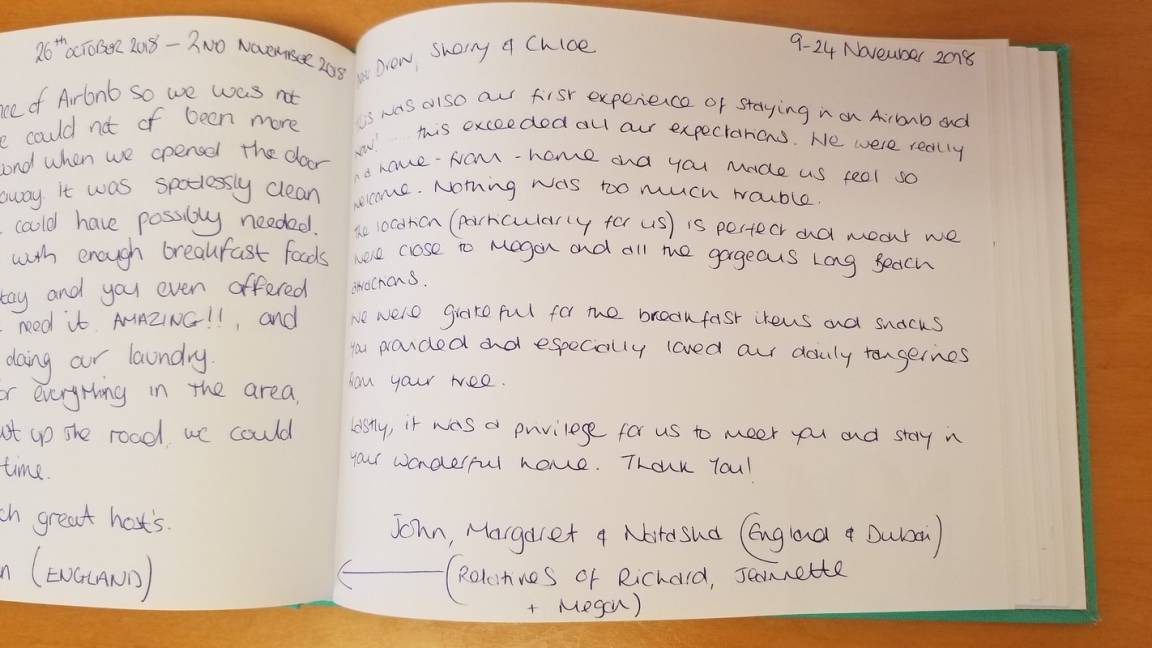 26th OCTOBER 2018 - 2ND NOVEMBER 2018
of Airbnb so we was not
could not of been more
and when we opened the door
away. It was spotlessly clean
could have possibly needed.
with enough breakfast foods
and you even offered
need it. AMAZING!!, and
doing our laundry.
everything in the area,
up the road, we could
time.
great host's.
(ENGLAND)
9-24 November 2018
Drew, Sherry & Chloe
was also our first experience of staying in an Airbnb and
wow! .... this exceeded all our expectations. We were really
home-from-home and you made us feel so
welcome. Nothing was too much trouble.
The location (particularly for us) is perfect and meant we
were close to Megan and all the gorgeous Long Beach
attractions.
We were grateful for the breakfast items and snacks
you provided and especially loved our daily tangerines
from your tree.
Lastly, it was a privilege for us to meet you and stay in
your wonderful home. Thank You!
John, Margaret & Natasha (England & Dubai)
(Relatives of Richard, Jeannette
+ Megan)